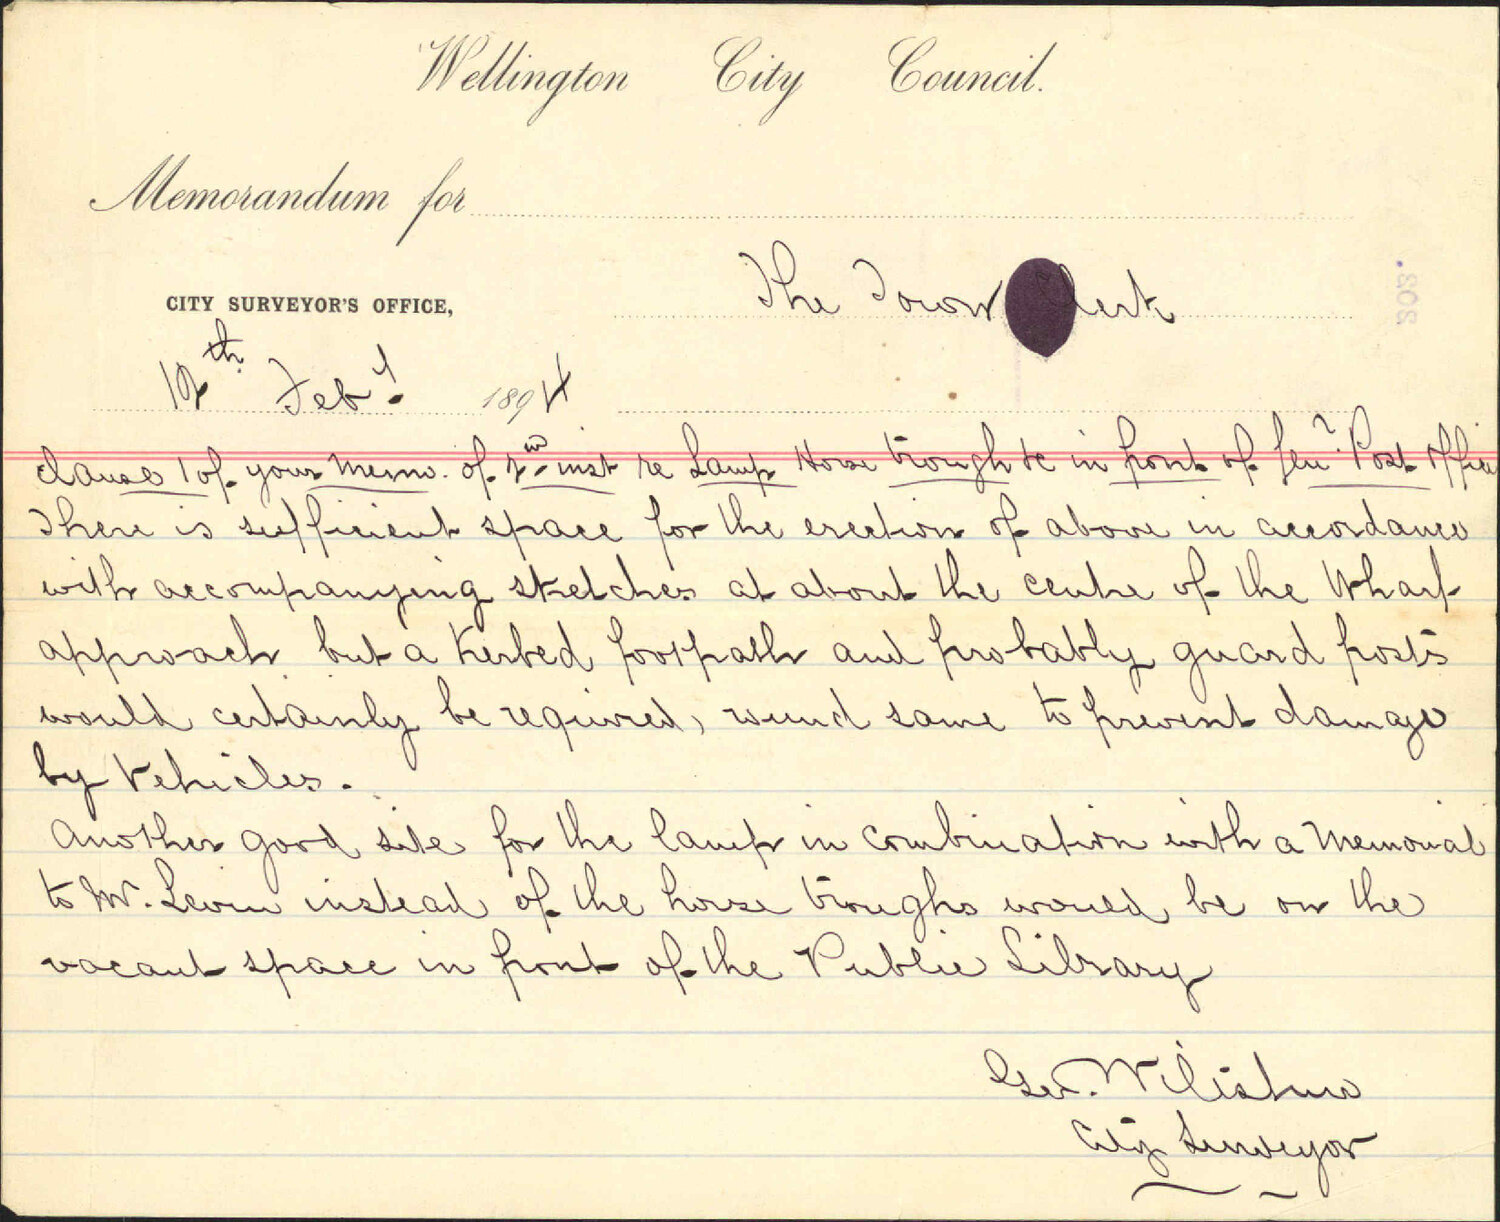 Wellington City Council.
Memorandum for
The Town Clerk
CITY SURVEYOR'S OFFICE,
12th Feby. 1894
Clause 1 of your Memo. of 2nd inst re Lamp Horse trough &c in front of Genl. Post Office
There is sufficient space for the erection of above in accordance
with accompanying sketches at about the centre of the Wharf
approach but a kerbed footpath and probably guard posts
would certainly be required, round same to prevent damage
by vehicles.
Another good site for the lamp in combination with a Memorial
to Mr. Levin instead of the horse troughs would be on the
vacant space in front of the Public Library
Geo. Wiltshire
City Surveyor
302.